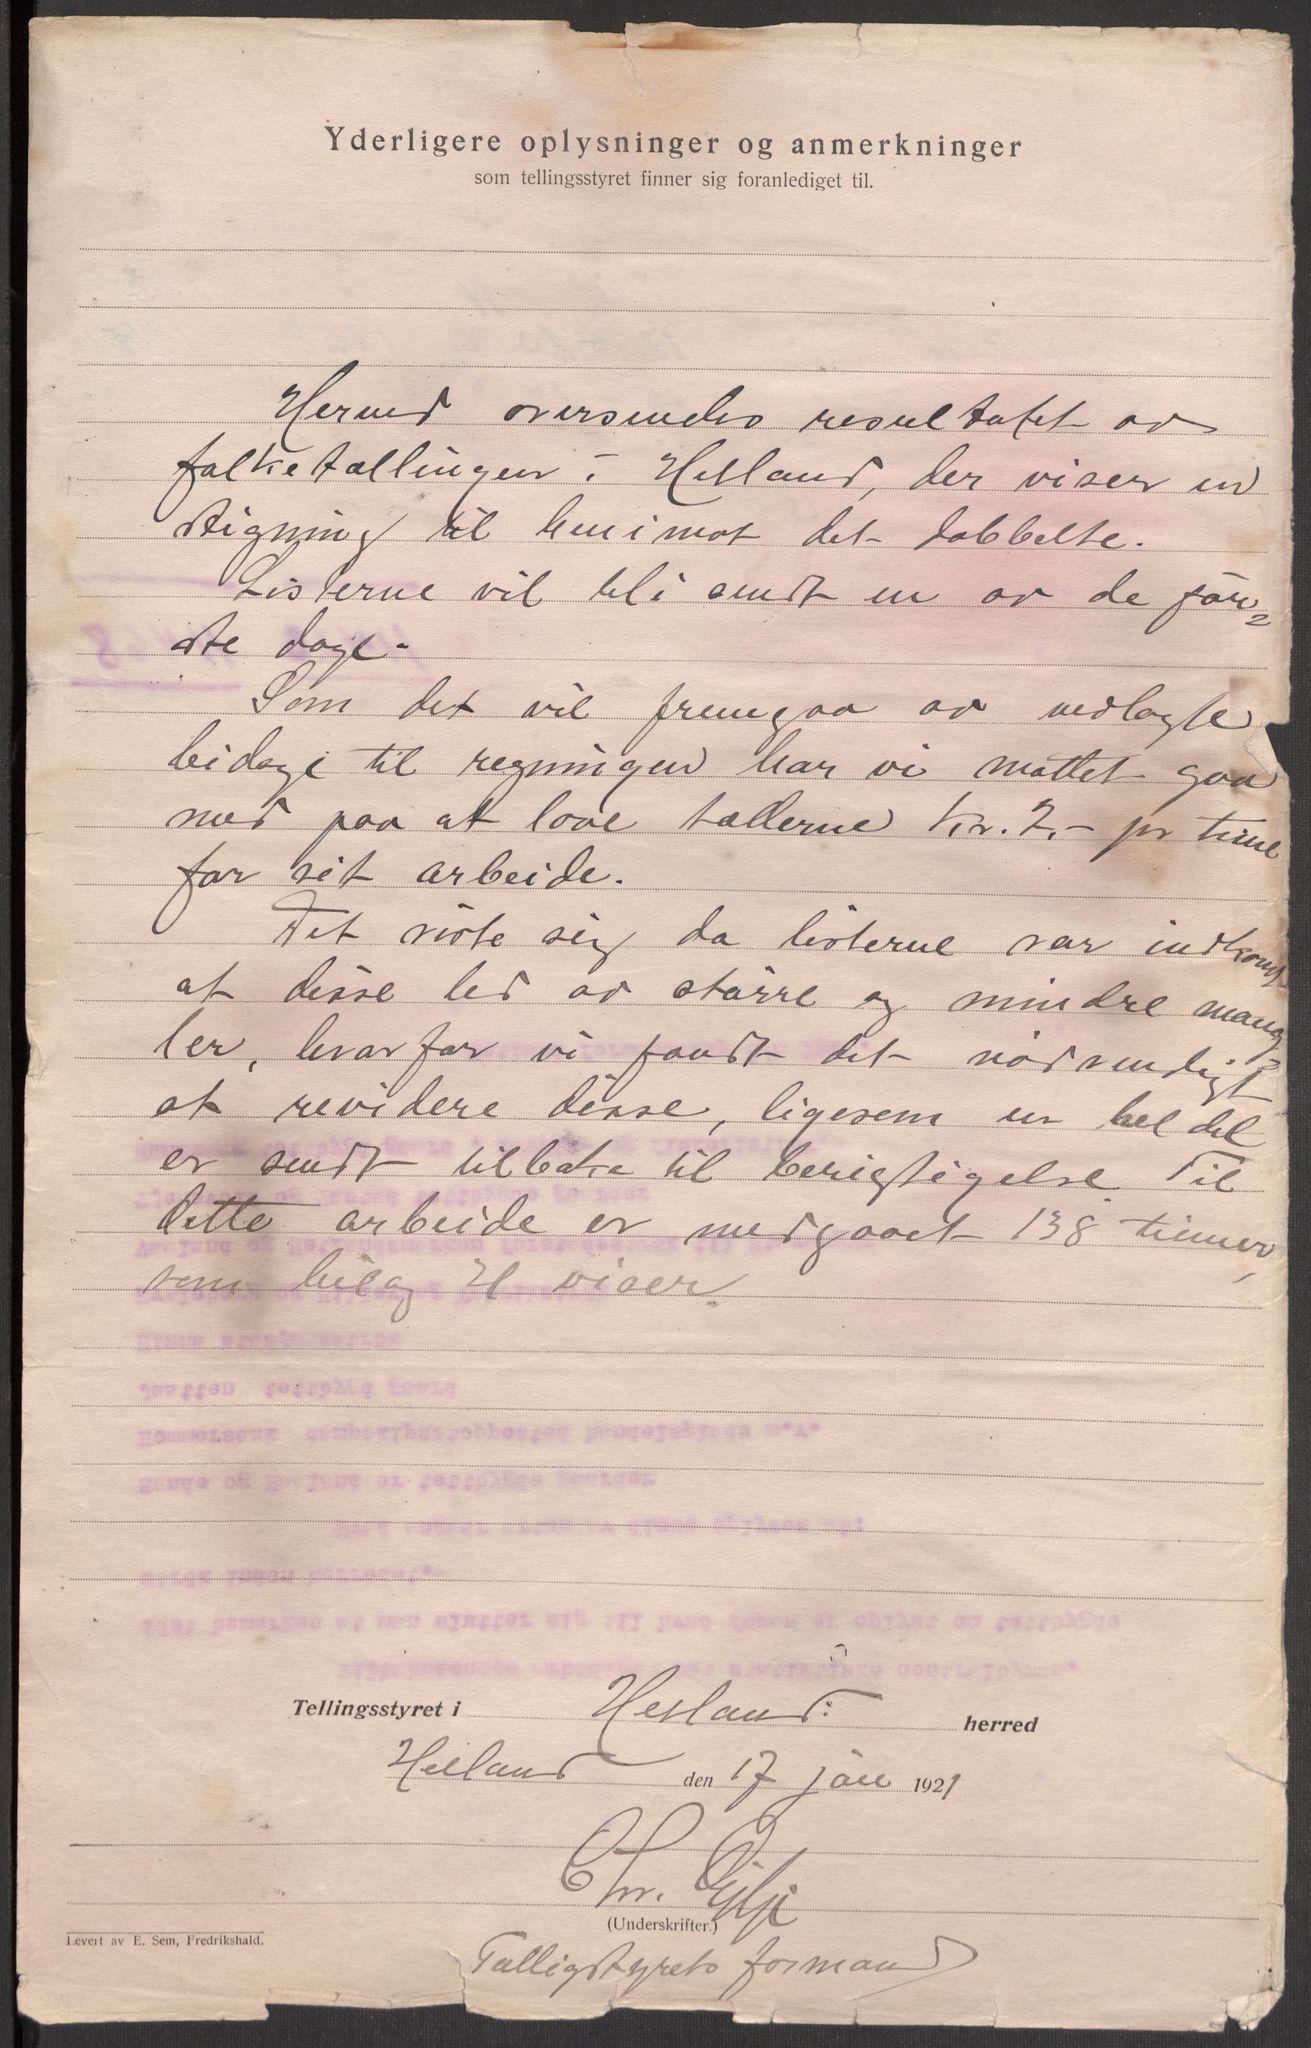 Yderligere oplysninger og anmerkninger
som tellingsstyret finner sig foranlediget til.
Hermed oversendes resultatet av
folketællingen i Hetland, der viser en
stigning til henimot det dobbelte.
Listerne vil bli sendt en av de för-
ste dage.
Som det vil fremgaa av vedlagte
bidage til regningen har vi måttet gaa
med paa at love tællerne kr. 2.- pr time
for sit arbeide.
Det viste sig da listerne var indkomt
at disse led av större og mindre mang-
ler, hvorfor vi fandt det nödvendigt
at revidere disse, ligesom en hel del
er sendt tilbake til berigtigelse. Til
dette arbeide er medgaaet 138 timer,
som bilag 21 viser.
Tellingsstyret i Hetland: herred
Hetland den 17 jan 1921
Chr. Gilje
(Underskrifter.)
Levert av E. Sem, Fredrikshald.
Ælligstyrets formand